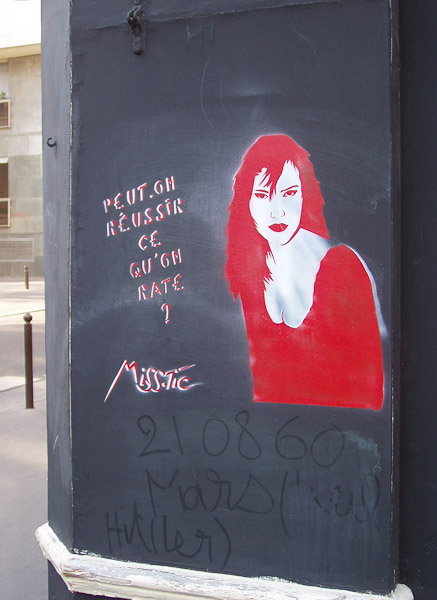 PEUT.ON
RÉUSSIR
CE
QU'ON
RATE
?
Miss.Tic
210860
Mars
Hitller)